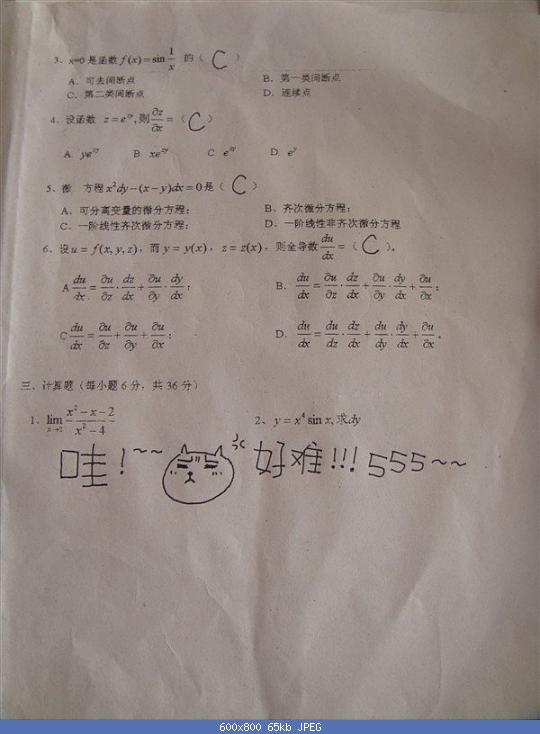 3、x=0是函数f(x)=sin 1/x 的(C)
A. 可去间断点 B. 第一类间断点
C. 第二类间断点 D. 连续点
4、设函数 z=e^{xy},则∂z/∂x=(C)
A. ye^{xy} B. xe^{xy} C. e^{xy} D. e^y
5、微 方程x²dy-(x-y)dx=0是(C)
A、可分离变量的微分方程; B、齐次微分方程;
C、一阶线性齐次微分方程; D、一阶线性非齐次微分方程
6、设u=f(x,y,z),而y=y(x),z=z(x),则全导数du/dx=(C)。
A du/dx=∂u/∂z·dz/dx+∂u/∂y·dy/dx; B. du/dx=∂u/∂z·dz/dx+∂u/∂y·dy/dx+∂u/∂x;
C du/dx=∂u/∂z+∂u/∂y+∂u/∂x; D. du/dx=du/dz·dz/dx+du/dy·dy/dx+∂u/∂x。
三、计算题(每小题6分,共36分)
1、lim x→2 (x²-x-2)/(x²-4) 2、y=x⁴sin x,求dy
哇!~~ 好难!!! 555~~
600x800 65kb JPEG